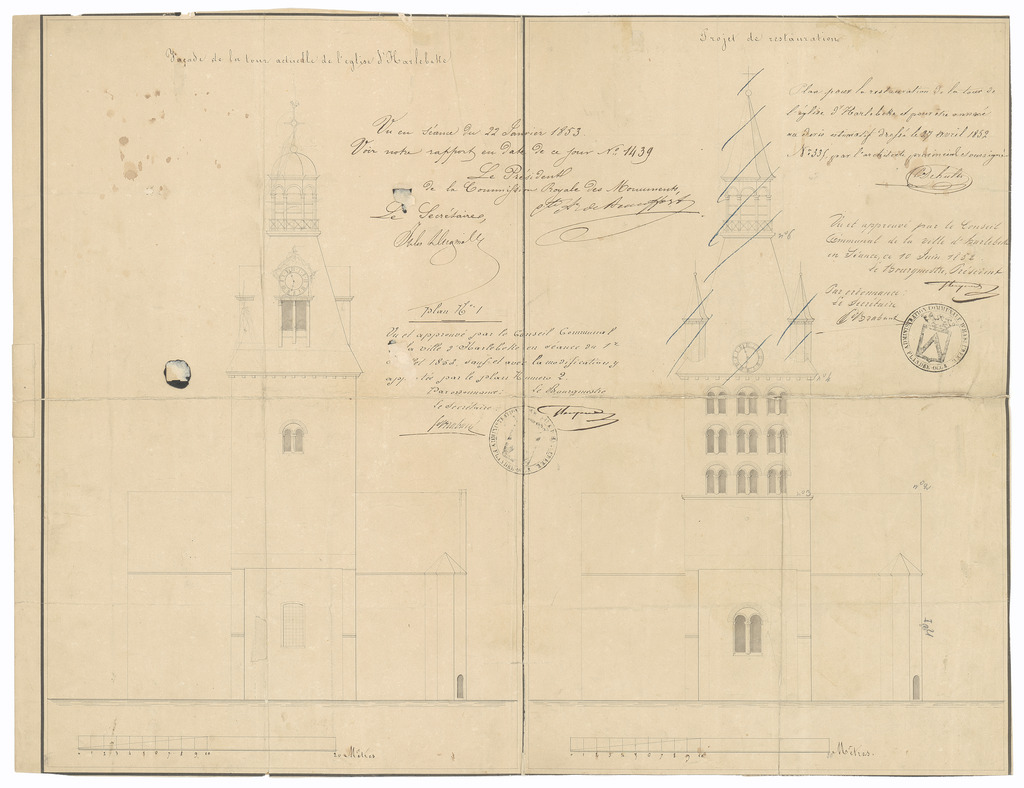 Façade de la tour actuelle de l'eglise d'Harlebeke
Projet de restauration
Vu en séance du 22 Janvier 1853.
Voir notre rapport en date de ce jour Nº 1439
Le Président
de la Commission Royale des Monuments,
Le Secrétaire,
plan Nº 1
Vu et approuvé par le Conseil Communal
de la ville d'Harlebeke en séance du 1er
1852 sauf et avec la modification y
par le plan Numero 2.
Par ordonnance: Le Bourgmestre
Le Secrétaire
Plan pour la restauration de la tour de
l'église d'Harlebeke et pour être annexé
au devis estimatif dressé le 27 avril 1852
Nº 335 par l'architecte provincial soussigné
Vu et approuvé par le Conseil
Communal de la ville d'Harlebeke
en Séance, ce 10 Juin 1852
Le Bourgmestre, Président
Par ordonnance:
Le Secrétaire
ADMINISTRATION COMMUNALE D'HARLEBEKE
FLANDRE OCCE
nº 6
nº 4
nº 3
nº 2
nº 1
20 Mètres
20 Mètres.